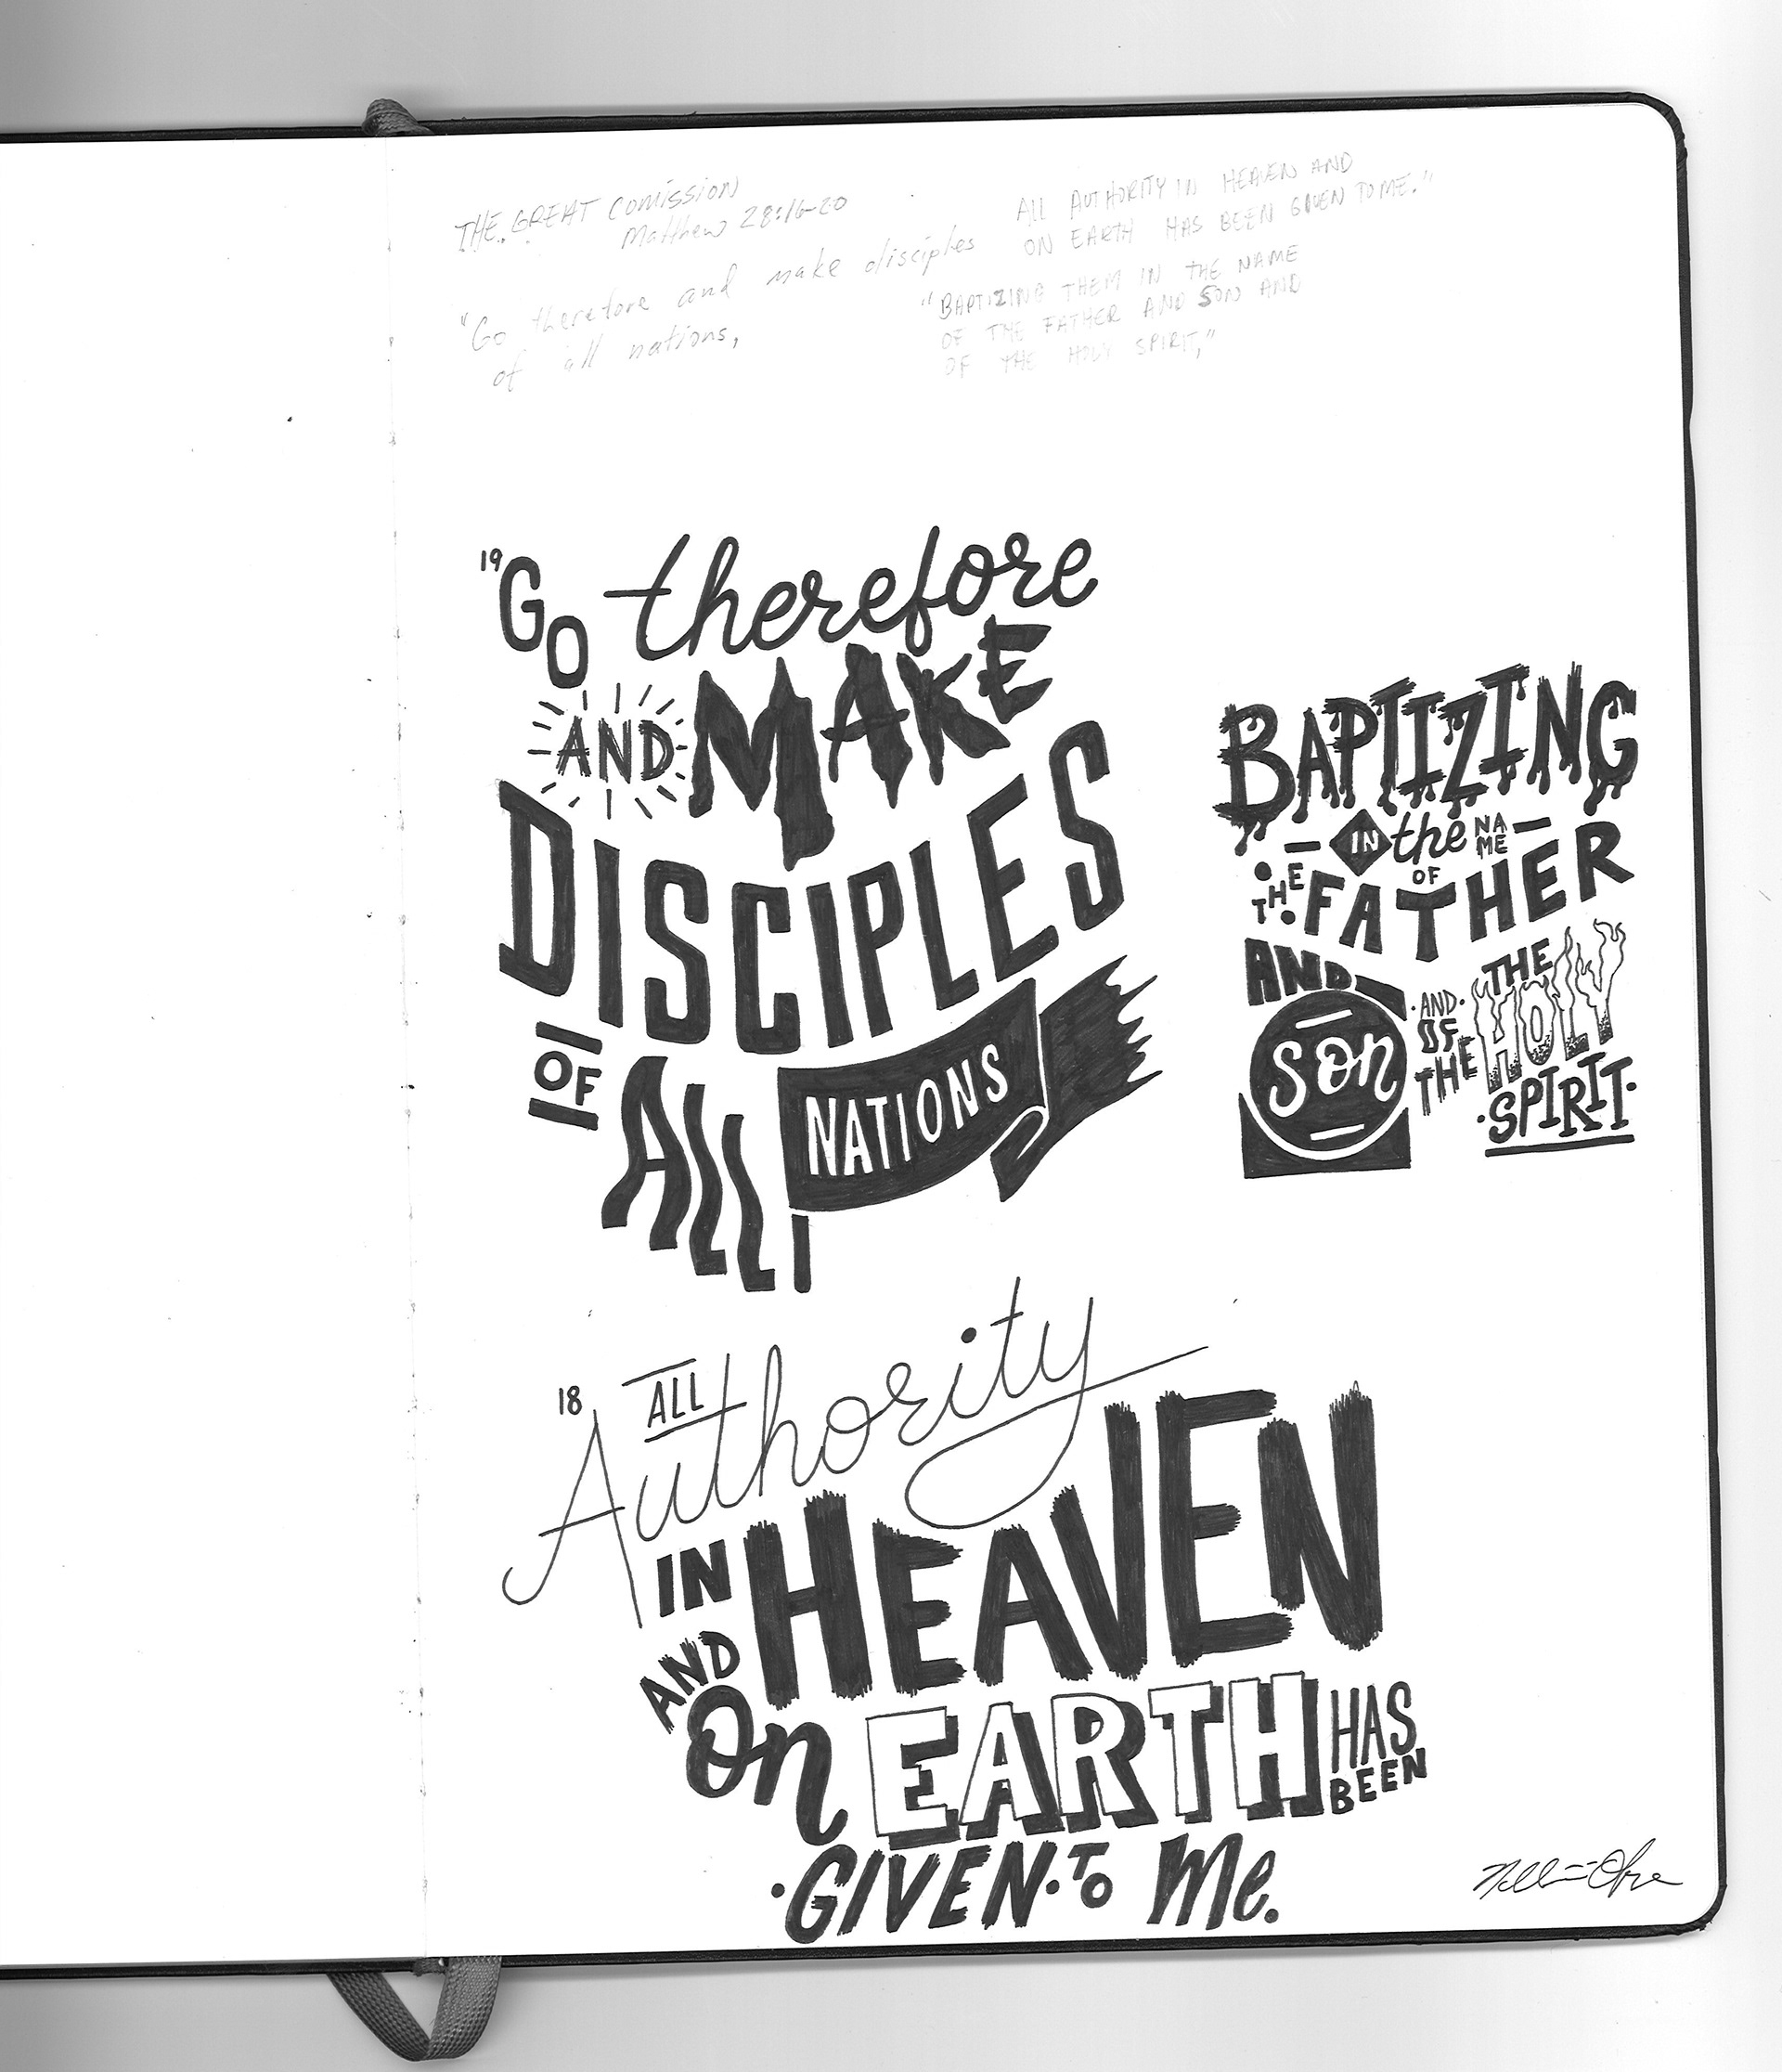 THE GREAT COMISSION
Matthew 28:16-20
"Go therefore and make disciples
of all nations,
ALL AUTHORITY IN HEAVEN AND
ON EARTH HAS BEEN GIVEN TO ME."
"BAPTIZING THEM IN THE NAME
OF THE FATHER AND SON AND
OF THE HOLY SPIRIT,"
19 GO therefore
AND MAKE
DISCIPLES
OF ALL NATIONS
BAPTIZING
IN the NAME
OF
THE FATHER
AND
SON
AND
OF
THE
THE
HOLY
SPIRIT
18 ALL
Authority
IN HEAVEN
AND
On EARTH HAS
BEEN
GIVEN TO Me.